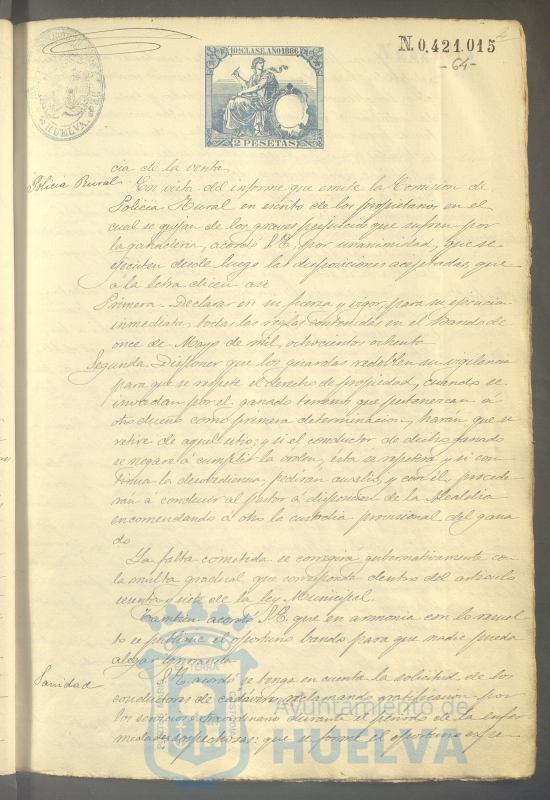 N. 0.421.015
- 64 -
10ª CLASE. AÑO 1886
2 PESETAS
HUELVA
cia de la venta
Policia Rural
En vista del informe que emite la Comision de
Policia Rural en escrito de los propietarios en el
cual se quejan de los graves perjuicios que sufren por
la ganaderia, acordó S.E. por unanimidad, que se
ejecuten desde luego las disposiciones aceptadas, que
á la letra dicen asi
Primera. Declarar en su fuerza y vigor para su ejecucion
inmediata, todas las reglas contenidas en el Bando de
once de Mayo de mil ochocientos ochenta
Segunda. Disponer que los guardas redoblen su vigilancia
para que se respete el derecho de propiedad, cuando se
invadan por el ganado terrenos que pertenezcan á
otro dueño como primera determinacion, harán que se
retire de aquel sitio: y si el conductor de dicho ganado
se negare á cumplir la orden, ésta se repetirá y si con-
tinua la desobediencia, pedirán auxilio, y con él, procede-
rán á conducir al pastor á disposicion de la Alcaldia
encomendando á otro la custodia provisional del gana
do
La falta cometida se corregirá gubernativamente con
la multa gradual, que corresponda dentro del artículo
setenta y siete de la ley Municipal.
Tambien acordó S.E. que en armonia con lo resuel
to se publique el oportuno bando para que nadie pueda
alegar ignorancia
Sanidad
S.E. acordó se tenga en cuenta la solicitud de los
conductores de cadáveres, reclamando gratificacion por
los servicios extraordinarios durante el período de la enfer
medad sospechosa: que se forme el oportuno espe-
Ayuntamiento de
HUELVA